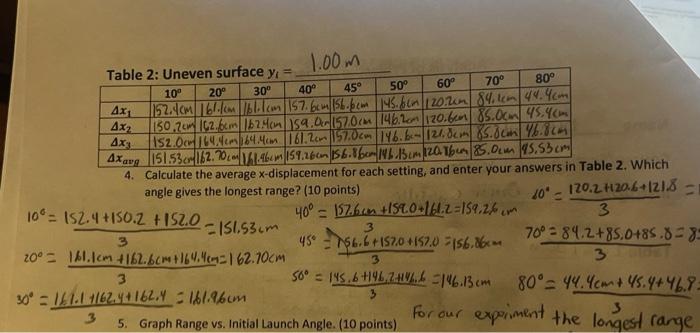 Table 2: Uneven surface yᵢ = 1.00 m
10° 20° 30° 40° 45° 50° 60° 70° 80°
Δx₁ 152.4cm 161.1cm 161.1cm 157.6cm 156.6cm 145.6cm 120.2cm 84.2cm 44.4cm
Δx₂ 150.2cm 162.6cm 162.4cm 159.0cm 157.0cm 146.2cm 120.6cm 85.0cm 45.4cm
Δx₃ 152.0cm 164.4cm 164.4cm 161.2cm 157.0cm 146.6cm 121.8cm 85.8cm 46.8cm
Δxavg 151.53cm 162.70cm 161.96cm 159.26cm 156.86cm 146.13cm 120.86cm 85.0cm 45.53cm
4. Calculate the average x-displacement for each setting, and enter your answers in Table 2. Which
angle gives the longest range? (10 points)
60° = 120.2+120.6+121.8 =
3
10° = 152.4+150.2+152.0 = 151.53cm
3
40° = 157.6cm+159.0+161.2 = 159.26cm
3
70° = 84.2+85.0+85.8 = 8
3
45° = 156.6+157.0+157.0 = 156.86cm
3
20° = 161.1cm+162.6cm+164.4cm = 162.70cm
3
50° = 145.6+146.2+146.6 = 146.13cm
3
80° = 44.4cm+45.4+46.8
3
30° = 161.1+162.4+162.4 = 161.96cm
3
For our experiment the longest range
5. Graph Range vs. Initial Launch Angle. (10 points)